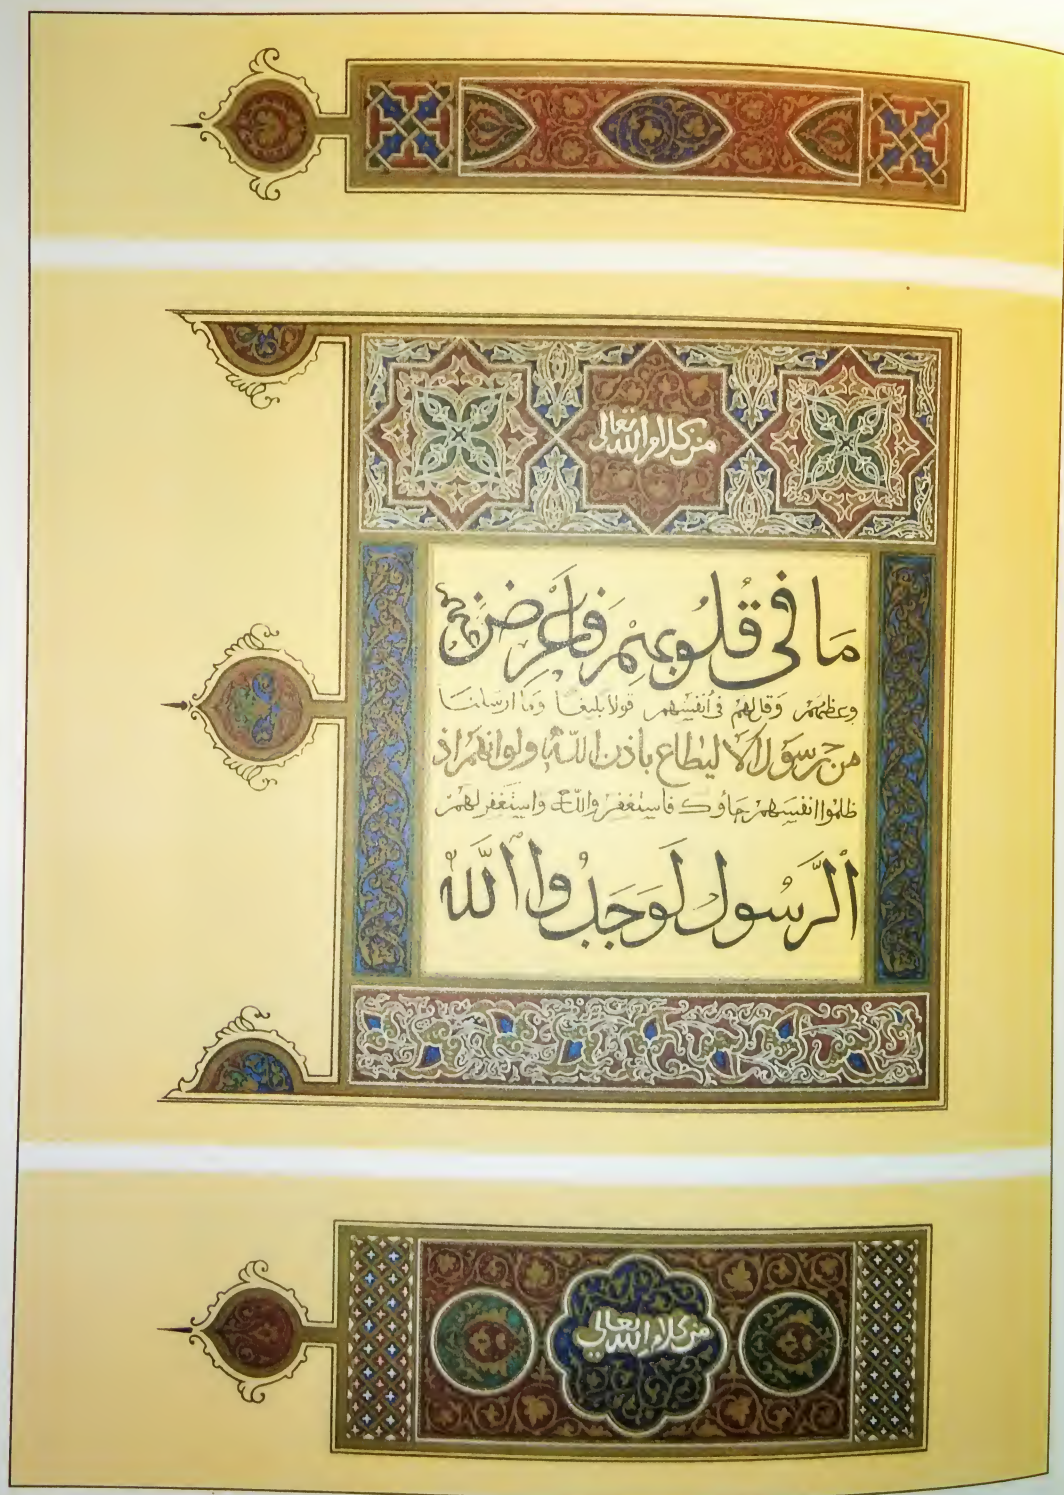 من كلام الله تعالى
مَا فِي قُلُوبِهِمْ فَأَعْرِضْ عَنْهُمْ
وعظهم وَقل لهم في أنفسهم قولا بليغا وَمَا ارسلنا
من رسول إلا ليطاع باذن الله ولو انهم اذ
ظلموا انفسهم جاؤك فاستغفروا الله واستغفر لهم
الرَّسُول لَوَجَدُوا اللَّه
من كلام الله تعالي